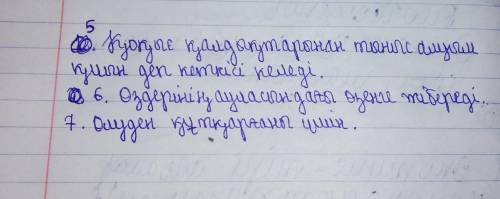 5. Қоқыс қалдықтарынан тыныс алуым
құшын деп кеткісі келеді.
6. Өздерінің ауласындағы өзенге жібереді.
7. Өлуден құтқарғаны үшін.